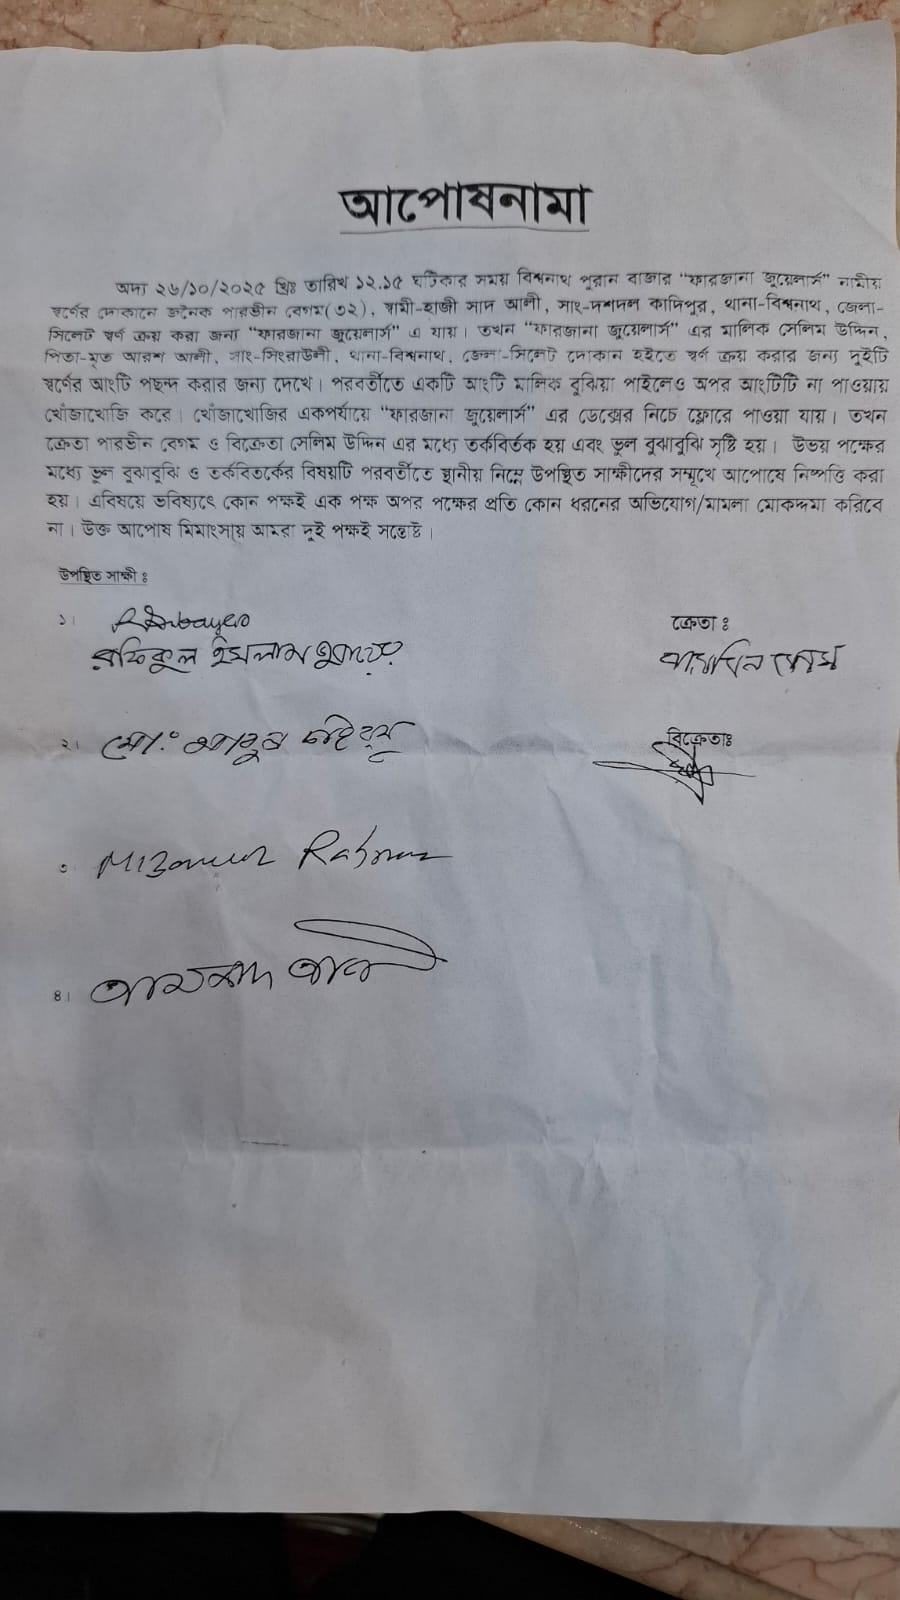 আপোষনামা
অদ্য ২৬/১০/২০২৫ খ্রিঃ তারিখ ১২.১৫ ঘটিকার সময় বিশ্বনাথ পুরান বাজার “ফারজানা জুয়েলার্স” নামীয়
স্বর্ণের দোকানে জনৈক পারভীন বেগম(৩২), স্বামী-হাজী সাদ আলী, সাং-দশদল কাদিপুর, থানা-বিশ্বনাথ, জেলা-
সিলেট স্বর্ণ ক্রয় করা জন্য “ফারজানা জুয়েলার্স” এ যায়। তখন “ফারজানা জুয়েলার্স” এর মালিক সেলিম উদ্দিন,
পিতা-মৃত আরশ আলী, সাং-সিংরাউলী, থানা-বিশ্বনাথ, জেলা-সিলেট দোকান হইতে স্বর্ণ ক্রয় করার জন্য দুইটি
স্বর্ণের আংটি পছন্দ করার জন্য দেখে। পরবর্তীতে একটি আংটি মালিক বুঝিয়া পাইলেও অপর আংটিটি না পাওয়ায়
খোঁজাখোজি করে। খোঁজাখোজির একপর্যায়ে “ফারজানা জুয়েলার্স” এর ডেক্সের নিচে ফ্লোরে পাওয়া যায়। তখন
ক্রেতা পারভীন বেগম ও বিক্রেতা সেলিম উদ্দিন এর মধ্যে তর্কবির্তক হয় এবং ভুল বুঝাবুঝি সৃষ্টি হয়। উভয় পক্ষের
মধ্যে ভুল বুঝাবুঝি ও তর্কবিতর্কের বিষয়টি পরবর্তীতে স্থানীয় নিম্নে উপস্থিত সাক্ষীদের সম্মূখে আপোষে নিষ্পত্তি করা
হয়। এবিষয়ে ভবিষ্যৎে কোন পক্ষই এক পক্ষ অপর পক্ষের প্রতি কোন ধরনের অভিযোগ/মামলা মোকদ্দমা করিবে
না। উক্ত আপোষ মিমাংসায় আমরা দুই পক্ষই সন্তোষ্ট।
উপস্থিত সাক্ষী ঃ
১।
রফিকুল ইসলাম জুবায়ের
ক্রেতা ঃ
২। মো:
বিক্রেতাঃ
৩ Mizanur Rahman
৪। আলী